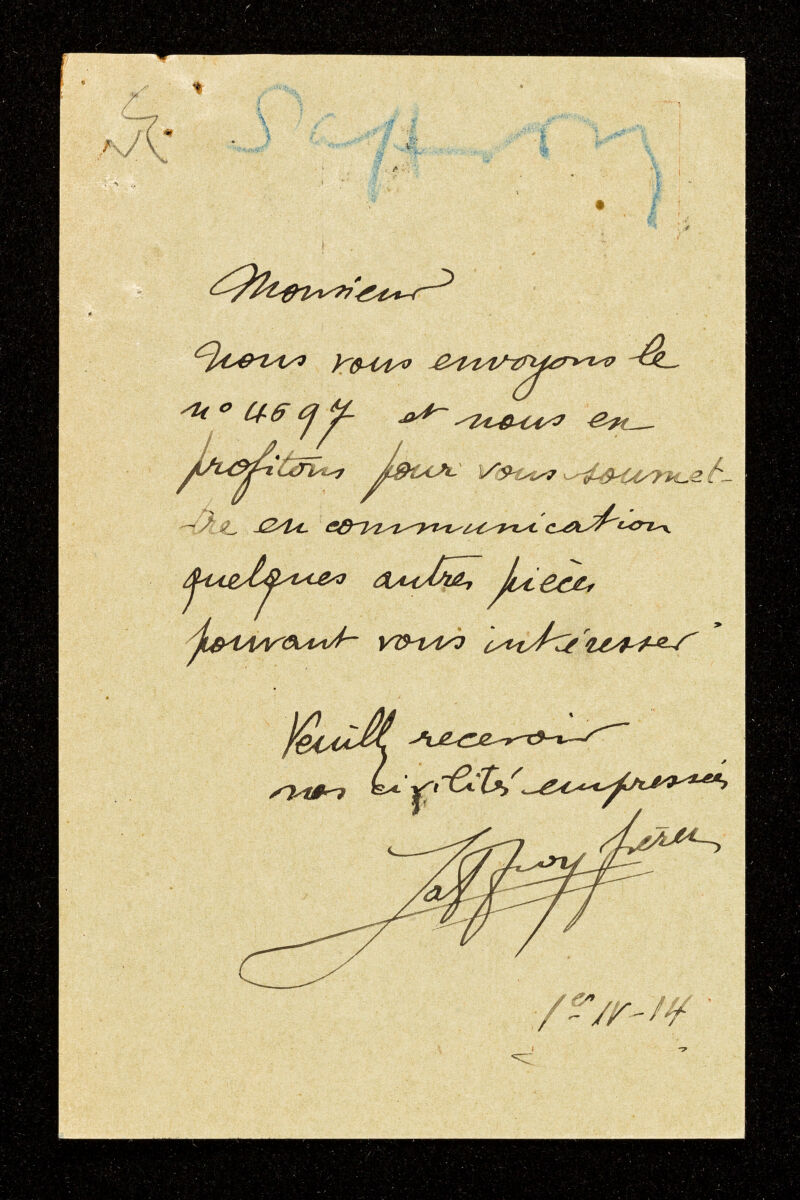 Saffroy
Monsieur
Nous vous envoyons le
n° 4697 et nous en
profitons pour vous soumet-
tre en communication
quelques autres pièces
pouvant vous intéresser
Veuillez recevoir
nos civilités empressées
Saffroy frères
1er IV-14